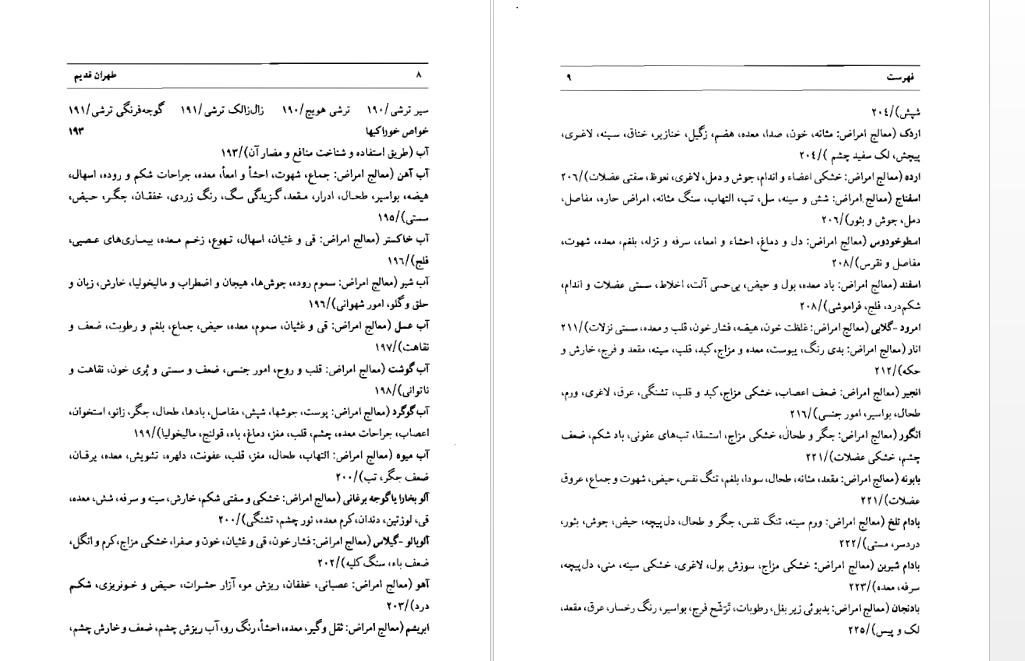 ۸ طهران قدیم
سیر ترشی/۱۹۰ ترشی هویج/۱۹۰ زال‌زالک ترشی/۱۹۱ گوجه‌فرنگی ترشی/۱۹۱
خواص خوراکیها ۱۹۳
آب (طریق استفاده و شناخت منافع و مضار آن)/۱۹۳
آب آهن (معالج امراض: جماع، شهوت، احشأ و امعأ، معده، جراحات شکم و روده، اسهال،
هیضه، بواسیر، طحال، ادرار، مقعد، گزیدگی سگ، رنگ زردی، خفقان، جگر، حیض،
سستی)/۱۹۵
آب خاکستر (معالج امراض: قی و غثیان، اسهال، تهوع، زخم معده، بیماری‌های عصبی،
فلج)/۱۹۶
آب شیر (معالج امراض: سموم روده، جوش‌ها، هیجان و اضطراب و مالیخولیا، خارش، زبان و
حلق و گلو، امور شهوانی)/۱۹۶
آب عسل (معالج امراض: قی و غثیان، سموم، معده، حیض، جماع، بلغم و رطوبت، ضعف و
نقاهت)/۱۹۷
آب گوشت (معالج امراض: قلب و روح، امور جنسی، ضعف و سستی و پُری خون، نقاهت و
ناتوانی)/۱۹۸
آب گوگرد (معالج امراض: پوست، جوشها، شپش، مفاصل، بادها، طحال، جگر، زانو، استخوان،
اعصاب، جراحات معده، چشم، قلب، مغز، دماغ، باء، قولنج، مالیخولیا)/۱۹۹
آب میوه (معالج امراض: التهاب، طحال، مغز، قلب، عفونت، دلهره، تشویش، معده، یرقان،
ضعف جگر، تب)/۲۰۰
آلو بخارا یا گوجه برغانی (معالج امراض: خشکی و سفتی شکم، خارش، سینه و سرفه، شش، معده،
قی، لوزتین، دندان، کرم معده، نور چشم، تشنگی)/۲۰۰
آلوبالو - گیلاس (معالج امراض: فشار خون، قی و غثیان، خون و صفرا، خشکی مزاج، کرم و انگل،
ضعف باء، سنگ کلیه)/۲۰۲
آهو (معالج امراض: عصبانی، خفقان، ریزش مو، آزار حشرات، حیض و خونریزی، شکم
درد)/۲۰۳
ابریشم (معالج امراض: ثقل وگیر، معده، احشأ، رنگ رو، آب ریزش چشم، ضعف و خارش چشم،
فهرست ۹
شپش)/۲۰۴
اردک (معالج امراض: مثانه، خون، صدا، معده، هضم، زگیل، خنازیر، خناق، سینه، لاغری،
پیچش، لک سفید چشم )/۲۰۴
ارده (معالج امراض: خشکی اعضاء و اندام، جوش و دمل، لاغری، نعوظ، سفتی عضلات)/۲۰۶
اسفناج (معالج امراض: شش و سینه، سل، تب، التهاب، سنگ مثانه، امراض حاره، مفاصل،
دمل، جوش و بثور)/۲۰۶
اسطوخودوس (معالج امراض: دل و دماغ، احشاء و امعاء، سرفه و نزله، بلغم، معده، شهوت،
مفاصل و نقرس)/۲۰۸
اسفند (معالج امراض: باد معده، بول و حیض، بی‌حسی آلت، اخلاط، سستی عضلات و اندام،
شکم‌درد، فلج، فراموشی)/۲۰۸
امرود - گلابی (معالج امراض: غلظت خون، هیضه، فشار خون، قلب و معده، سستی نزلات)/۲۱۱
انار (معالج امراض: بدی رنگ، یبوست، معده و مزاج، کبد، قلب، سینه، مقعد و فرج، خارش و
حکه)/۲۱۲
انجیر (معالج امراض: ضعف اعصاب، خشکی مزاج، کبد و قلب، تشنگی، عرق، لاغری، ورم،
طحال، بواسیر، امور جنسی)/۲۱۶
انگور (معالج امراض: جگر و طحال، خشکی مزاج، استسقا، تب‌های عفونی، باد شکم، ضعف
چشم، خشکی عضلات)/۲۲۱
بابونه (معالج امراض: مقعد، مثانه، طحال، سودا، بلغم، تنگ نفس، حیض، شهوت و جماع، عروق
عضلات)/۲۲۱
بادام تلخ (معالج امراض: ورم سینه، تنگ نفس، جگر و طحال، دل‌پیچه، حیض، جوش، بثور،
دردسر، مستی)/۲۲۲
بادام شیرین (معالج امراض: خشکی مزاج، سوزش بول، لاغری، خشکی سینه، منی، دل‌پیچه،
سرفه، معده)/۲۲۳
بادنجان (معالج امراض: بدبوئی زیر بغل، رطوبات، تَرَشّح فرج، بواسیر، رنگ رخسار، عرق، مقعد،
لک و پیس)/۲۲۵